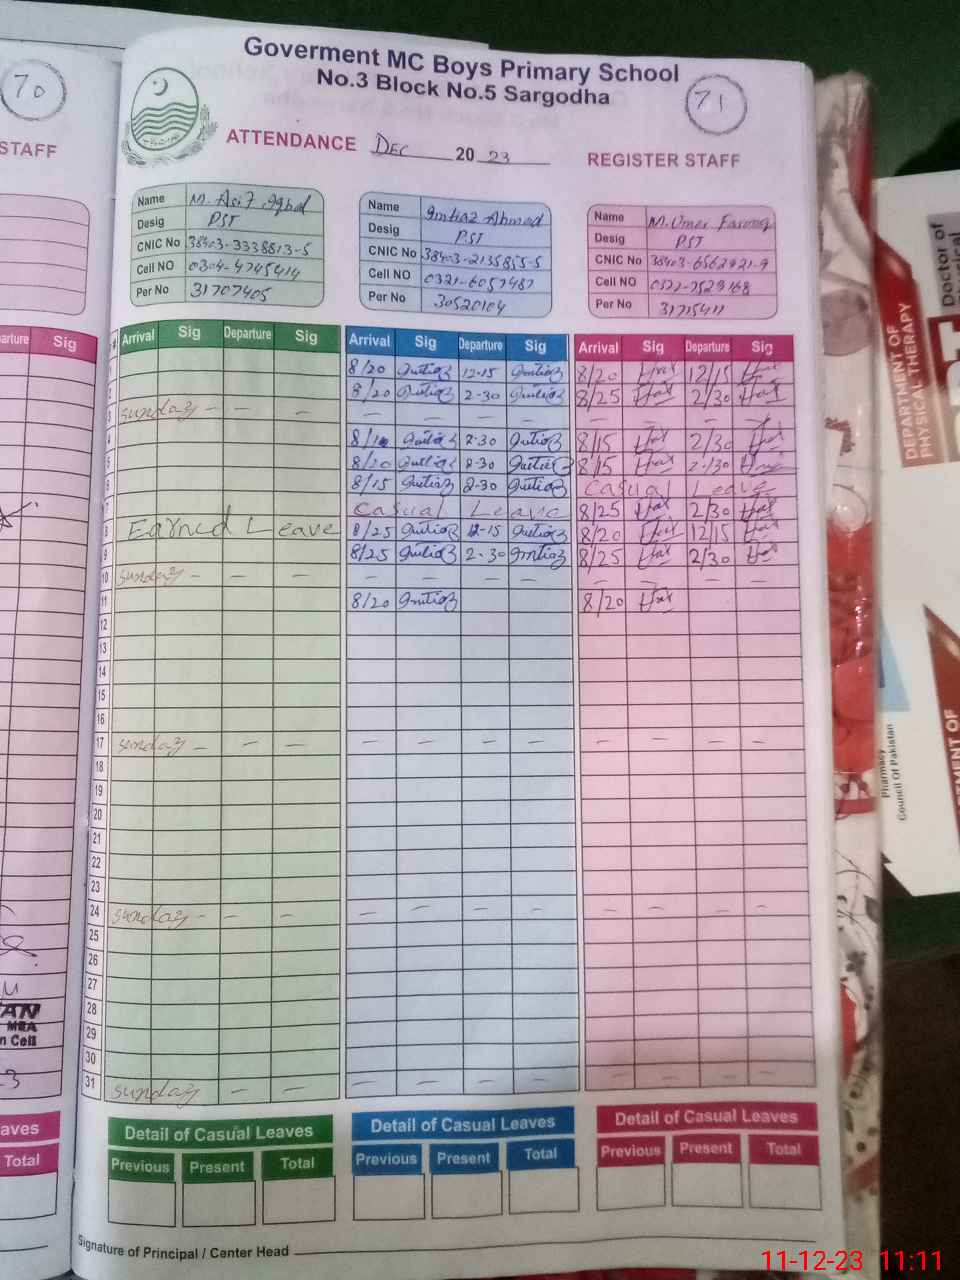 70
STAFF
Goverment MC Boys Primary School
No.3 Block No.5 Sargodha
71
ATTENDANCE DEC 20 23 REGISTER STAFF
Name M. Asif Iqbal
Desig PST
CNIC No 38403-3338813-5
Cell NO 0304-4745414
Per No 31707405
Name Imtiaz Ahmad
Desig PST
CNIC No 38403-2135855-5
Cell NO 0321-6057487
Per No 30520104
Name M. Umer Farooq
Desig PST
CNIC No 38403-6562921-9
Cell NO 0321-7529168
Per No 31715411
arture Sig
# Arrival Sig Departure Sig Arrival Sig Departure Sig Arrival Sig Departure Sig
1 8/20 Imtiaz 12-15 Imtiaz 8/20 12/15
2 8/20 Imtiaz 2-30 Imtiaz 8/25 2/30
3 sunday - - - - - - - - - - -
4 8/10 Imtiaz 2-30 Imtiaz 8/15 2/30
5 8/20 Imtiaz 2-30 Imtiaz 8/15 2/30
6 8/15 Imtiaz 2-30 Imtiaz Casual Leave
7 Casual Leave 8/25 2/30
8 Earned Leave 8/25 Imtiaz 12-15 Imtiaz 8/20 12/15
9 8/25 Imtiaz 2-30 Imtiaz 8/25 2/30
10 sunday - - - - - - - - - - -
11 8/20 Imtiaz 8/20
12
13
14
15
16
17 sunday - - - - - - - - - - -
18
19
20
21
22
23
24 sunday - - - - - - - - - - -
25
26
27
28
29
30
31 sunday - - - - - - - - - - -
AN
MEA
n Cell
Detail of Casual Leaves Detail of Casual Leaves Detail of Casual Leaves
Previous Present Total Previous Present Total Previous Present Total
aves
Total
Signature of Principal / Center Head
Doctor of
DEPARTMENT OF
PHYSICAL THERAPY
Pharmacy
Council Of Pakistan
11-12-23 11:11